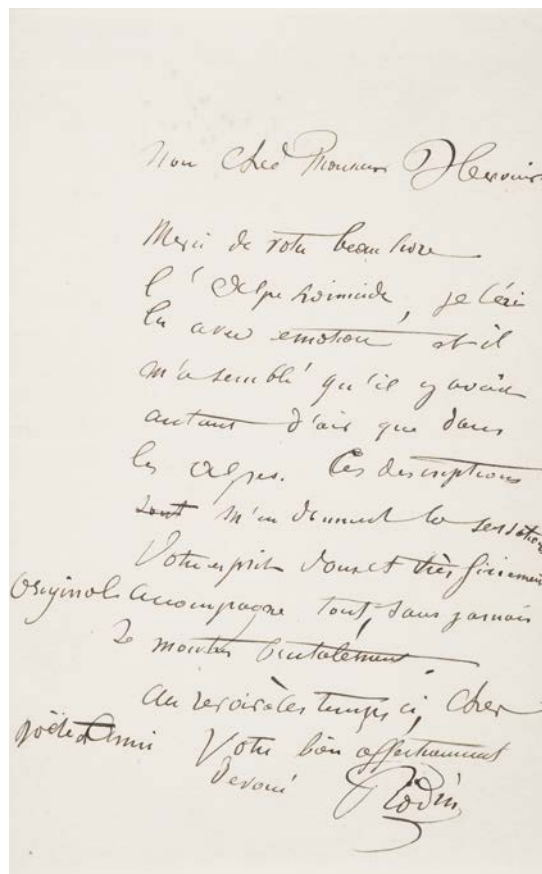 Mon Cher Monsieur Hervieu
Merci de votre beau livre
l'Alpe homicide, je l'ai
lu avec emotion et il
m'a semblé qu'il y avait
autant d'air que dans
les Alpes. Ces descriptions
sont m'en donnent la sensation
Votre esprit doux et très finement
original accompagne tout, sans jamais
se montrer brutalement
au revoir à ces temps ci, cher
poète et ami Votre bien affectionné
devoué Rodin